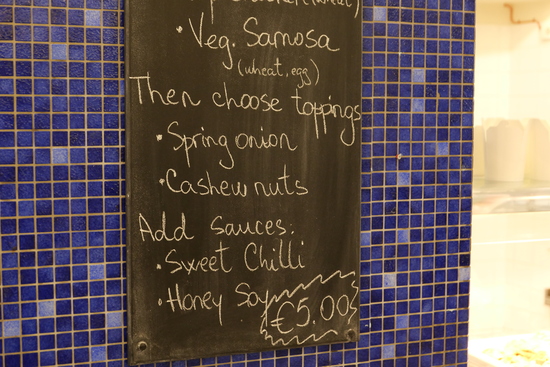 (wheat)
• Veg. Samosa
(wheat, egg)
Then choose toppings
• Spring onion
• Cashew nuts
Add sauces:
• Sweet Chilli
• Honey Soy
€5.00